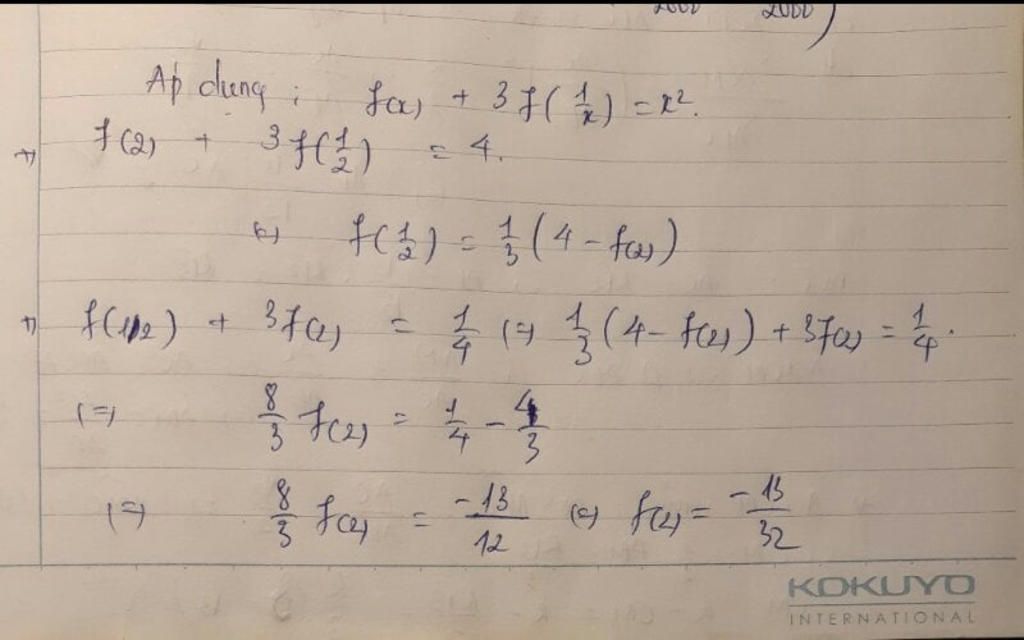 2000 2000 )
Áp dụng : f(x) + 3f(1/x) = x².
+) f(2) + 3f(1/2) = 4.
(=) f(1/2) = 1/3 (4 - f(2))
+) f(1/2) + 3f(2) = 1/4 (=) 1/3 (4 - f(2)) + 3f(2) = 1/4.
(=) 8/3 f(2) = 1/4 - 4/3
(=) 8/3 f(2) = -13/12 (=) f(2) = -13/32
KOKUYO
INTERNATIONAL